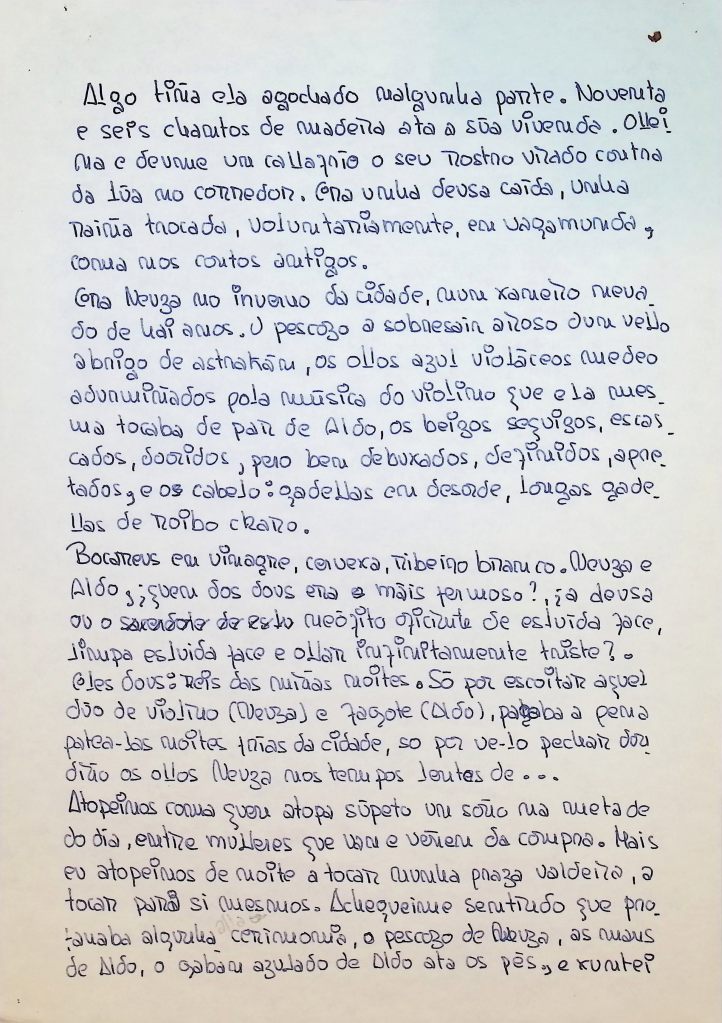 Algo tiña ela agochado nalgunha parte. Noventa
e seis chantos de madeira ata a súa vivenda. Ollei
na e deume un calafrío o seu rostro virado contra
da lúa no corredor. Era unha deusa caída, unha
raíña trocada, voluntariamente, en vagamunda,
coma nos contos antigos.
Era Neuza no inverno da cidade, nun xaneiro neva_
do de hai anos. O pescozo a sobresair airoso dun vello
abrigo de astrakán, os ollos azul violáceos medeo
adurmiñados pola música do violino que ela mes_
ma tocaba de par de Aldo, os beizos seguizos, escas_
cados, dooridos, pero ben debuxados, definidos, apre_
tados, e os cabelo: gadellas en desorde, longas gade_
llas de roibo claro.
Bocareus en vinagre, cervexa, ribeiro branco. Neuza e
Aldo, ¿quen dos dous era o máis fermoso?, ¿a deusa
ou o sacerdote de esto neófito oficiante de esluída face,
limpa esluída face e ollar infinitamente triste?.
Eles dous: reis das miñas noites. Só por escoitar aquel
dúo de violino (Neuza) e fagote (Aldo), pagaba a pena
patea-las noites frías da cidade, so por ve-lo pechar dou
dirão os ollos Neuza nos tempos lentes de ...
Atopeinos coma quen atopa súpeto un soño na metade
do día, entre mulleres que van e veñen da compra. Mais
eu atopeinos de noite a tocar nunha praza valdeira, a
tocar para si mesmos. Achegueime sentindo que pro_
fanaba algunha cerimonia, o pescozo de Neuza, as mans
de Aldo, o gabán azulado de Aldo ata os pés, e xuntei